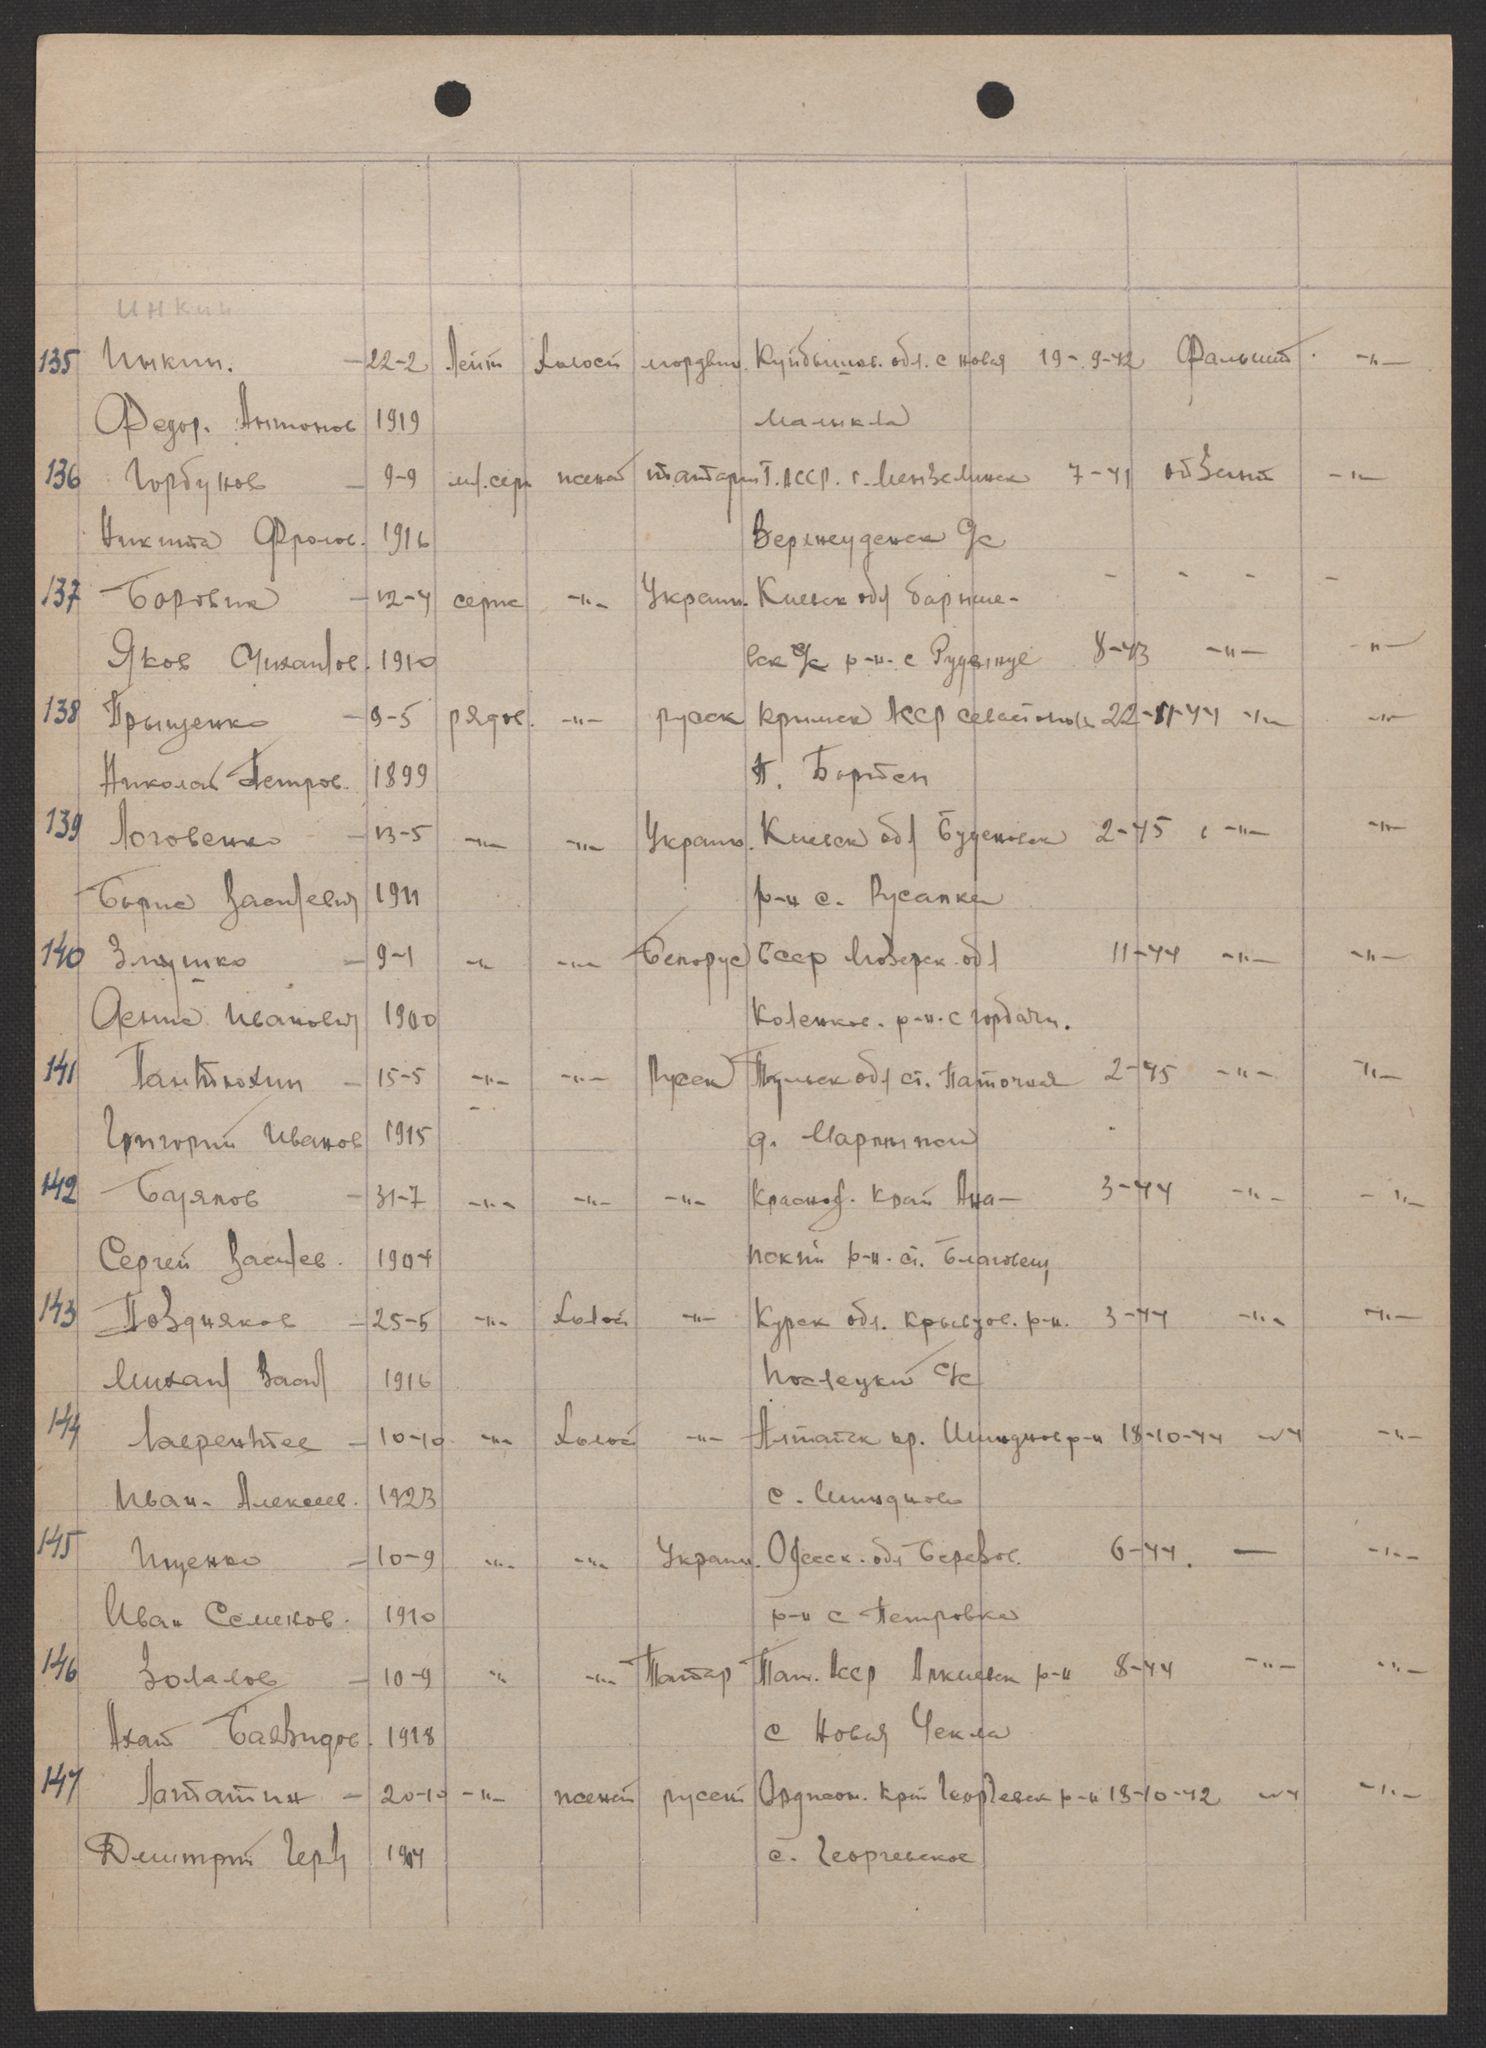 инкин
135 Инкин. - 22-2 Лейт Холост мордвин. Куйбышев. обл. с новая 19-9-42 Фальшт. -"-
Федор. Антонов 1919 малыкла
136 Горбунов - 9-9 мл. серж женат татарин Т.АССР. г. Мензелинск 7-41 обзент -"-
Никита Фролов. 1916 Верхнеуденск с/с
137 Боровик - 12-4 серж -"- Украин. Киевск обл Барыше-
Яков Михайлов. 1910 вск р-н. с Рудницы 8-43 -"- -"-
138 Прыщенко - 9-5 рядов. -"- русск Крымск АССР Севастополь 22-11-44 -"- -"-
Николай Петров. 1899
139 Логовенко - 13-5 -"- -"- Украин. Киевск обл Буденовск 2-45 -"- -"-
Борис Васильевич 1911 р-н с. Русалка
140 - 9-1 -"- -"- Белорус БССР Мозерск. обл 11-44 -"- -"-
Иванович 1900 р-н. с Горбачи.
141 Пантюхин - 15-5 -"- -"- Русск Тульск обл ст. Паточная 2-45 -"- -"-
Григорий Иванов 1915 д.
142 - 31-7 -"- -"- -"- Краснод. край Ана- 3-44 -"- -"-
Сергей Васильев. 1904 пский р-н. ст. Благовещ
143 Поздняков - 25-5 -"- Холост -"- Курск обл. Кривцов. р-н. 3-44 -"- -"-
Михаил Васил 1916 с/с
144 Лаврентьев - 10-10 -"- Холост -"- Алтайск кр. р-н 18-10-44 -"-
Иван. Алексеев. 1923 с.
145 Ищенко - 10-9 -"- -"- Украин. Одесск. обл Березов. 6-44. — -"-
Иван Семенов. 1910 р-н с Петровка
146 Золалов - 10-9 -"- -"- Татар Тат. АССР Алкиевск р-н 8-44 -"- -"-
Ахат Баязидов. 1918 с Новая Чекла
147 - 20-10 -"- женат русский Орджон. край Георгиевск р-н 18-10-42 -"-
Дмитрий 1904 с. Георгиевское